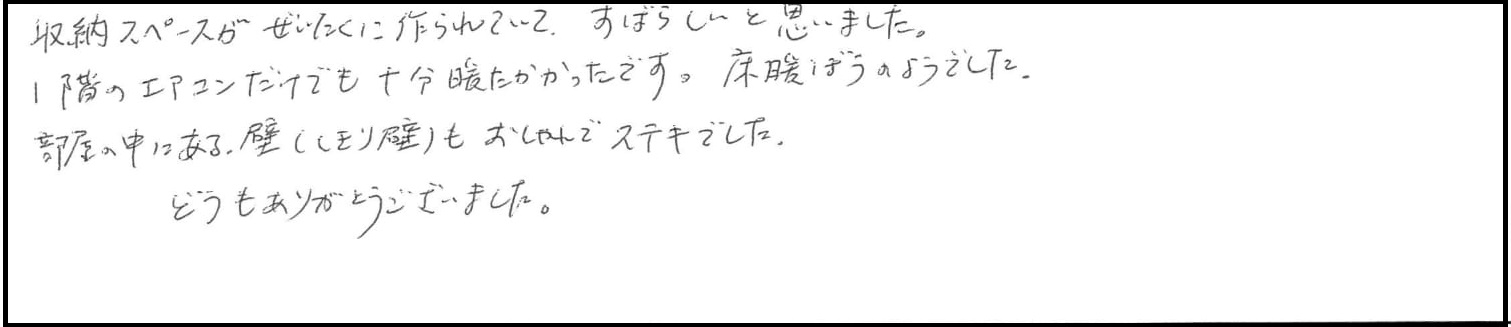 収納スペースがぜいたくに作られていて、すばらしいと思いました。
1階のエアコンだけでも十分暖たかかったです。床暖ぼうのようでした。
部屋の中にある、壁(くモリ壁)も おしゃれで ステキでした。
どうもありがとうございました。